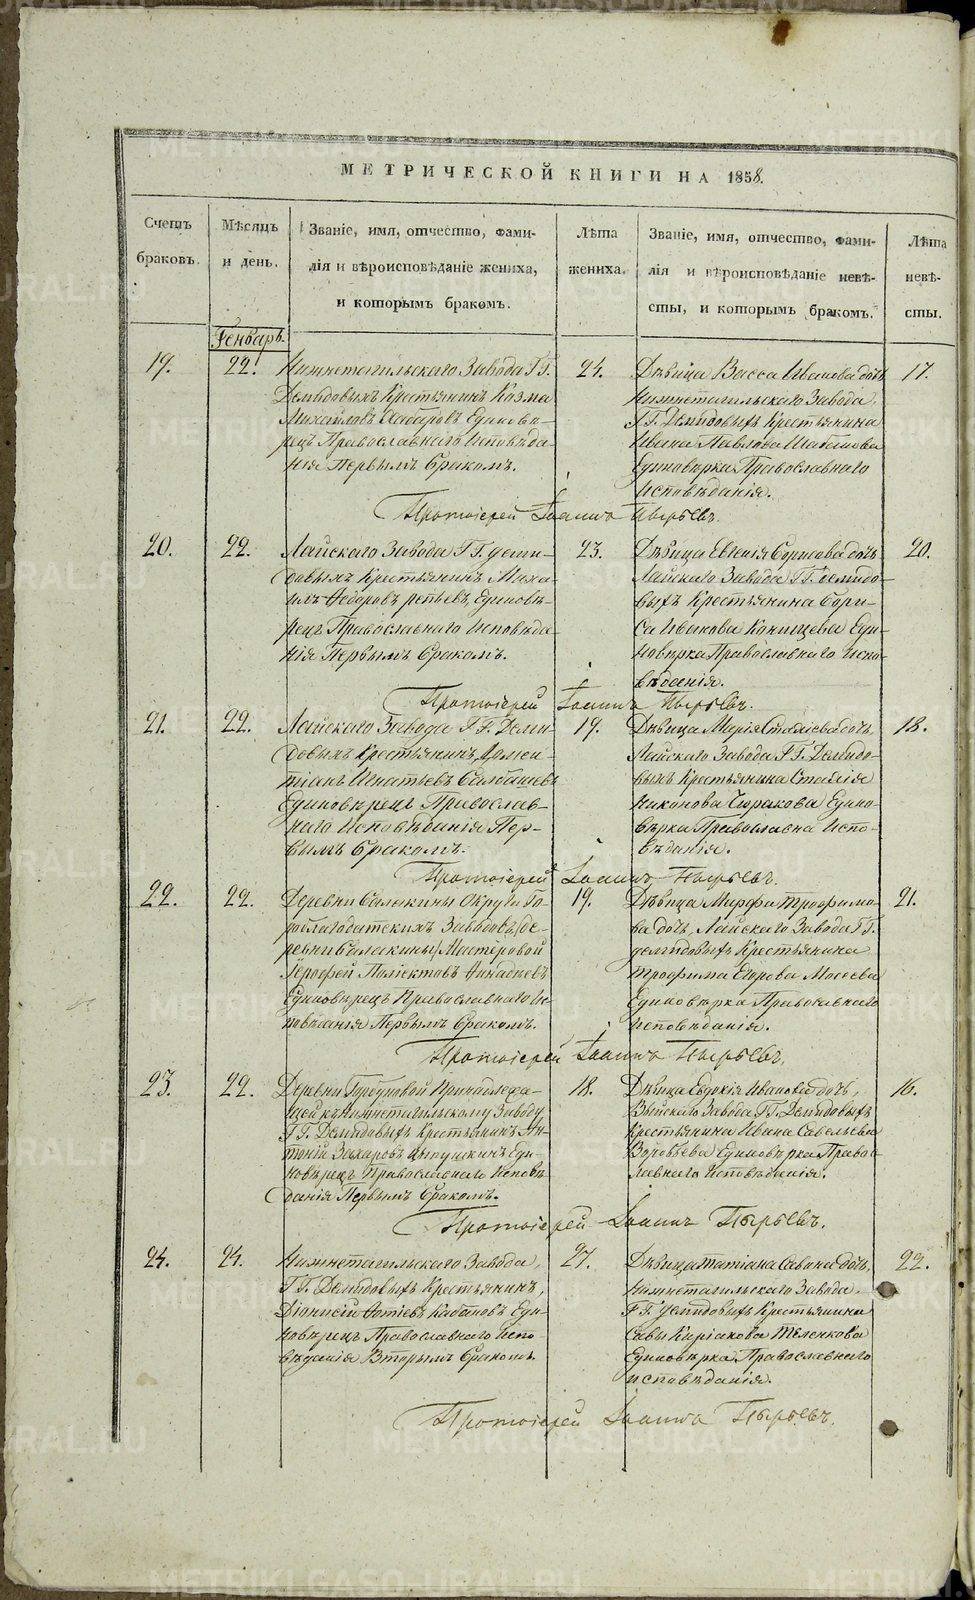 МЕТРИЧЕСКОЙ КНИГИ НА 1858.
Счетъ
браковъ.
Мѣсяцъ
и день.
Званіе, имя, отчество, фами-
лія и вѣроисповѣданіе жениха,
и которымъ бракомъ.
Лѣта
жениха.
Званіе, имя, отчество, фами-
лія и вѣроисповѣданіе невѣ-
сты, и которымъ бракомъ.
Лѣта
невѣ-
сты.
Генварь.
19.
22.
Нижнетагильскаго Завода Г.Г.
Демидовыхъ Крестьянинъ Козма
Михайловъ Хабаровъ Единовѣ-
рецъ Православнаго Исповѣда-
нія Первымъ бракомъ.
24.
Дѣвица Васса Иванова дочь
Нижнетагильскаго Завода,
Г.Г. Демидовыхъ Крестьянина
Ивана Павлова Шабанова
Единовѣрка Православнаго
Исповѣданія.
17.
Протоіерей Іоаннъ Пырьевъ.
20.
22.
Лайскаго Завода Г.Г. Деми-
довыхъ Крестьянинъ Миха-
илъ Ѳедоровъ Репьевъ, Единовѣ-
рецъ Православнаго Исповѣда-
нія Первымъ бракомъ.
23.
Дѣвица Евгенія Борисова дочь
Лайскаго Завода Г.Г. Демидо-
выхъ Крестьянина Бори-
са Иванова Конищева Еди-
новѣрка Православнаго Испо-
вѣданія.
20.
Протоіерей Іоаннъ Пырьевъ.
21.
22.
Лайскаго Завода Г.Г. Деми-
довыхъ Крестьянинъ Домен-
тіанъ Игнатьевъ Балбашевъ
Единовѣрецъ Православ-
наго Исповѣданія Пер-
вымъ бракомъ.
19.
Дѣвица Марія Стахіева дочь
Лайскаго Завода Г.Г. Демидо-
выхъ Крестьянина Стахія
Никонова Чюракова Едино-
вѣрка Православна Испо-
вѣданія.
18.
Протоіерей Іоаннъ Пырьевъ.
22.
22.
Деревни Балакины Округи Го-
роблагодатскихъ Заводовъ (де-
ревни Балакины) Мастеровой
Іерофей Поліектовъ
Единовѣрецъ Православнаго Ис-
повѣданія Первымъ бракомъ.
19.
Дѣвица Марфа Трофимо-
ва дочь, Лайскаго Завода Г.Г.
Демидовыхъ Крестьянина
Трофима Егорова Мосеева
Единовѣрка Православнаго
Исповѣданія.
21.
Протоіерей Іоаннъ Пырьевъ.
23.
22.
Деревни Горбуновой Принадлежа-
щей къ Нижнетагильскому Заводу
Г.Г. Демидовыхъ Крестьянинъ Ан-
тоній Захаровъ Еди-
новѣрецъ Православнаго Исповѣ-
данія Первымъ бракомъ.
18.
Дѣвица Евдокія Иванова дочь,
Выйскаго Завода Г.Г. Демидовыхъ
Крестьянина Ивана Савельева
Воробьева Единовѣрка Право-
славнаго Исповѣданія.
16.
Протоіерей Іоаннъ Пырьевъ.
24.
24.
Нижнетагильскаго Завода,
Г.Г. Демидовыхъ Крестьянинъ,
Діонисій Фотіевъ Кабановъ Еди-
новѣрецъ Православнаго Испо-
вѣданія Вторымъ бракомъ.
27.
Дѣвица Татіана Савина дочь,
Нижнетагильскаго Завода,
Г.Г. Демидовыхъ Крестьянина
Савы Киріакова Теленкова
Единовѣрка Православнаго
Исповѣданія.
22.
Протоіерей Іоаннъ Пырьевъ.